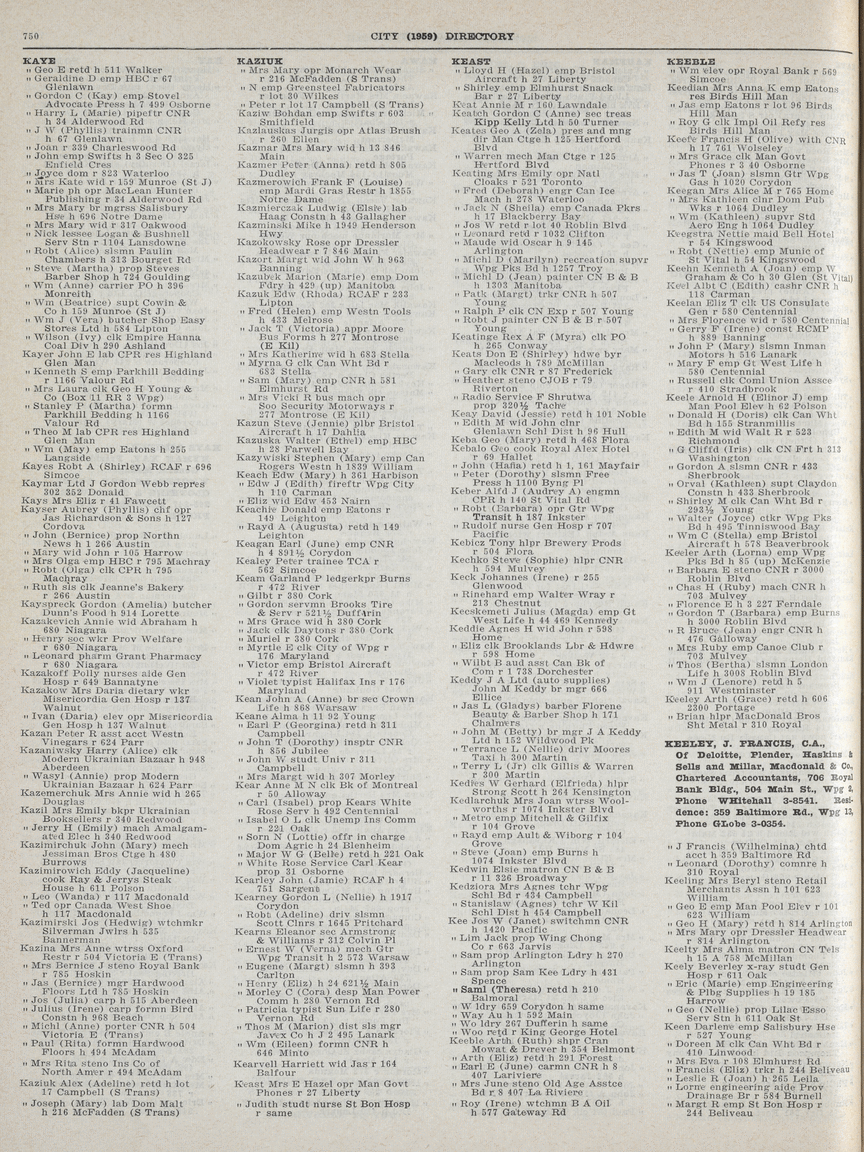 750
CITY (1959) DIRECTORY
KAYE
" Geo E retd h 511 Walker
" Geraldine D emp HBC r 67
Glenlawn
" Gordon C (Kay) emp Stovel
Advocate Press h 7 499 Osborne
" Harry L (Marie) pipeftr CNR
h 34 Alderwood Rd
" J W (Phyllis) trainmn CNR
h 67 Glenlawn
" Joan r 339 Charleswood Rd
" John emp Swifts h 3 Sec O 325
Enfield Cres
" Joyce dom r 823 Waterloo
" Mrs Kate wid r 159 Munroe (St J)
" Marie ph opr MacLean Hunter
Publishing r 34 Alderwood Rd
" Mrs Mary br mgrss Salisbury
Hse h 696 Notre Dame
" Mrs Mary wid r 317 Oakwood
" Nick lessee Logan & Bushnell
Serv Stn r 1104 Lansdowne
" Robt (Alice) slsmn Paulin
Chambers h 313 Bourget Rd
" Steve (Martha) prop Steves
Barber Shop h 724 Goulding
" Wm (Anne) carrier PO h 396
Monreith
" Wm (Beatrice) supt Cowin &
Co h 159 Munroe (St J)
" Wm J (Vera) butcher Shop Easy
Stores Ltd h 584 Lipton
" Wilson (Ivy) clk Empire Hanna
Coal Div h 290 Ashland
Kayer John E lab CPR res Highland
Glen Man
" Kenneth S emp Parkhill Bedding
r 1166 Valour Rd
" Mrs Laura clk Geo H Young &
Co (Box 11 RR 3 Wpg)
" Stanley P (Martha) formn
Parkhill Bedding h 1166
Valour Rd
" Theo M lab CPR res Highland
Glen Man
" Wm (May) emp Eatons h 255
Langside
Kayes Robt A (Shirley) RCAF r 696
Simcoe
Kaymar Ltd J Gordon Webb repres
302 352 Donald
Kays Mrs Eliz r 41 Fawcett
Kayser Aubrey (Phyllis) chf opr
Jas Richardson & Sons h 127
Cordova
" John (Bernice) prop Northn
News h 1 266 Austin
" Mary wid John r 105 Harrow
" Mrs Olga emp HBC r 795 Machray
" Robt (Olga) clk CPR h 795
Machray
" Ruth sls clk Jeanne's Bakery
r 266 Austin
Kayspreck Gordon (Amelia) butcher
Dunn's Food h 914 Lorette
Kazakevich Annie wid Abraham h
680 Niagara
" Henry soc wkr Prov Welfare
r 680 Niagara
" Leonard pharm Grant Pharmacy
r 680 Niagara
Kazakoff Polly nurses aide Gen
Hosp r 649 Bannatyne
Kazakow Mrs Daria dietary wkr
Misericordia Gen Hosp r 137
Walnut
" Ivan (Daria) elev opr Misericordia
Gen Hosp h 137 Walnut
Kazan Peter R asst acct Westn
Vinegars r 624 Parr
Kazaniwsky Harry (Alice) clk
Modern Ukrainian Bazaar h 948
Aberdeen
" Wasyl (Annie) prop Modern
Ukrainian Bazaar h 624 Parr
Kazemerchuk Mrs Annie wid h 265
Douglas
Kazil Mrs Emily bkpr Ukrainian
Booksellers r 340 Redwood
" Jerry H (Emily) mach Amalgam-
ated Elec h 340 Redwood
Kazimirchuk John (Mary) mech
Jessiman Bros Ctge h 480
Burrows
Kazimirowich Eddy (Jacqueline)
cook Ray & Jerrys Steak
House h 611 Polson
" Leo (Wanda) r 117 Macdonald
" Ted opr Canada West Shoe
h 117 Macdonald
Kazimirski Jos (Hedwig) wtchmkr
Silverman Jwlrs h 535
Bannerman
Kazina Mrs Anne wtrss Oxford
Restr r 504 Victoria E (Trans)
" Mrs Bernice J steno Royal Bank
r 785 Hoskin
" Jas (Bernice) mgr Hardwood
Floors Ltd h 785 Hoskin
" Jos (Julia) carp h 515 Aberdeen
" Julius (Irene) carp formn Bird
Constn h 968 Beach
" Michl (Anne) porter CNR h 504
Victoria E (Trans)
" Paul (Rita) formn Hardwood
Floors h 494 McAdam
" Mrs Rita steno Ins Co of
North Amer r 494 McAdam
Kaziuk Alex (Adeline) retd h lot
17 Campbell (S Trans)
" Joseph (Mary) lab Dom Malt
h 216 McFadden (S Trans)
KAZIUK
" Mrs Mary opr Monarch Wear
r 216 McFadden (S Trans)
" N emp Greensteel Fabricators
r lot 30 Wilkes
" Peter r lot 17 Campbell (S Trans)
Kaziw Bohdan emp Swifts r 603
Smithfield
Kazlauskas Jurgis opr Atlas Brush
r 260 Ellen
Kazmar Mrs Mary wid h 13 846
Main
Kazmer Peter (Anna) retd h 805
Dudley
Kazmerowich Frank F (Louise)
emp Mardi Gras Restr h 1855
Notre Dame
Kazmierczak Ludwig (Elsie) lab
Haag Constn h 43 Gallagher
Kazminski Mike h 1949 Henderson
Hwy
Kazokowsky Rose opr Dressler
Headwear r 7 846 Main
Kazort Margt wid John W h 963
Banning
Kazubek Marion (Marie) emp Dom
Fdry h 429 (up) Manitoba
Kazuk Edw (Rhoda) RCAF r 233
Lipton
" Fred (Helen) emp Westn Tools
h 433 Melrose
" Jack T (Victoria) appr Moore
Bus Forms h 277 Montrose
(E Kil)
" Mrs Katherine wid h 683 Stella
" Myrna G clk Can Wht Bd r
683 Stella
" Sam (Mary) emp CNR h 581
Elmhurst Rd
" Mrs Vicki R bus mach opr
Soo Security Motorways r
277 Montrose (E Kil)
Kazun Steve (Jennie) plbr Bristol
Aircraft h 17 Dahlia
Kazuska Walter (Ethel) emp HBC
h 28 Farwell Bay
Kazywiski Stephen (Mary) emp Can
Rogers Westn h 1839 William
Keach Edw (Mary) h 361 Harbison
" Edw J (Edith) fireftr Wpg City
h 110 Carman
" Eliz wid Edw 453 Nairn
Keachie Donald emp Eatons r
149 Leighton
" Rayd A (Augusta) retd h 149
Leighton
Keagan Earl (June) emp CNR
h 4 891½ Corydon
Kealey Peter trainee TCA r
562 Simcoe
Keam Garland P ledgerkpr Burns
r 472 River
" Gilbt r 380 Cork
" Gordon servmn Brooks Tire
& Serv r 521½ Dufferin
" Mrs Grace wid h 380 Cork
" Jack clk Daytons r 380 Cork
" Muriel r 380 Cork
" Myrtle E clk City of Wpg r
176 Maryland
" Victor emp Bristol Aircraft
r 472 River
" Violet typist Halifax Ins r 176
Maryland
Kean John A (Anne) br sec Crown
Life h 868 Warsaw
Keane Alma h 11 92 Young
" Earl P (Georgina) retd h 311
Campbell
" John T (Dorothy) insptr CNR
h 856 Jubilee
" John W studt Univ r 311
Campbell
" Mrs Margt wid h 307 Morley
Kear Anne M N clk Bk of Montreal
r 50 Alloway
" Carl (Isabel) prop Kears White
Rose Serv h 492 Centennial
" Isabel O L clk Unemp Ins Comm
r 221 Oak
" Sorn N (Lottie) offr in charge
Dom Agric h 24 Blenheim
" Major W G (Belle) retd h 221 Oak
" White Rose Service Carl Kear
prop 31 Osborne
Kearley John (Jamie) RCAF h 4
751 Sargent
Kearney Gordon L (Nellie) h 1917
Corydon
" Robt (Adeline) driv slsmn
Scott Clnrs r 1645 Pritchard
Kearns Eleanor sec Armstrong
& Williams r 312 Colvin Pl
" Ernest W (Verna) mech Gtr
Wpg Transit h 2 573 Warsaw
" Eugene (Margt) slsmn h 393
Carlton
" Henry (Eliz) h 24 621½ Main
" Morley C (Cora) desp Man Power
Comm h 280 Vernon Rd
" Patricia typist Sun Life r 280
Vernon Rd
" Thos M (Marion) dist sls mgr
Javex Co h J 2 495 Lanark
" Wm (Eileen) formn CNR h
646 Minto
Kearvell Harriett wid Jas r 164
Balfour
Keast Mrs E Hazel opr Man Govt
Phones r 27 Liberty
" Judith studt nurse St Bon Hosp
r same
KEAST
" Lloyd H (Hazel) emp Bristol
Aircraft h 27 Liberty
" Shirley emp Elmhurst Snack
Bar r 27 Liberty
Keat Annie M r 160 Lawndale
Keatch Gordon C (Anne) sec treas
Kipp Kelly Ltd h 50 Turner
Keates Geo A (Zela) pres and mng
dir Man Ctge h 125 Hertford
Blvd
" Warren mech Man Ctge r 125
Hertford Blvd
Keating Mrs Emily opr Natl
Cloaks r 521 Toronto
" Fred (Deborah) engr Can Ice
Mach h 278 Waterloo
" Jack N (Sheila) emp Canada Pkrs
h 17 Blackberry Bay
" Jos W retd r lot 40 Roblin Blvd
" Leonard retd r 1032 Clifton
" Maude wid Oscar h 9 145
Arlington
" Michl D (Marilyn) recreation supvr
Wpg Pks Bd h 1257 Troy
" Michl D (Jean) painter CN B & B
h 1303 Manitoba
" Patk (Margt) trkr CNR h 507
Young
" Ralph P clk CN Exp r 507 Young
" Robt J painter CN B & B r 507
Young
Keatinge Rex A F (Myra) clk PO
h 265 Conway
Keats Don E (Shirley) hdwe byr
Macleods h 789 McMillan
" Gary clk CNR r 87 Frederick
" Heather steno CJOB r 79
Riverton
" Radio Service F Shrutwa
prop 320½ Tache
Keay David (Jessie) retd h 101 Noble
" Edith M wid John clnr
Glenlawn Schl Dist h 96 Hull
Keba Geo (Mary) h 468 Flora
Kebalo Geo cook Royal Alex Hotel
r 69 Hallet
" John (Haña) retd h 1, 161 Mayfair
" Peter (Dorothy) slsmn Free
Press h 1100 Byng Pl
Keber Alfd J (Audrey A) engmn
CPR h 140 St Vital Rd
" Robt (Barbara) opr Gtr Wpg
Transit h 187 Inkster
" Rudolf nurse Gen Hosp r 707
Pacific
Kebicz Tony hlpr Brewery Prods
r 504 Flora
Kechko Steve (Sophie) hlpr CNR
h 594 Mulvey
Keck Johannes (Irene) r 255
Glenwood
" Rinehard emp Walter Wray r
213 Chestnut
Kecskemeti Julius (Magda) emp Gt
West Life h 44 469 Kennedy
Keddie Agnes H wid John r 598
Home
" Eliz clk Brooklands Lbr & Hdwre
r 598 Home
" Wilbt B aud asst Can Bk of
Com r 1 738 Dorchester
Keddy J A Ltd (auto supplies)
John M Keddy br mgr 666
Ellice
" Jas L (Gladys) barber Florene
Beauty & Barber Shop h 171
Chalmers
" John M (Betty) br mgr J A Keddy
Ltd h 152 Wildwood Pk
" Terrance L (Nellie) driv Moores
Taxi h 300 Martin
" Terry L (Jr) clk Gillis & Warren
r 300 Martin
Kedies W Gerhard (Elfrieda) hlpr
Strong Scott h 264 Kensington
Kedlarchuk Mrs Joan wtrss Wool-
worths r 1074 Inkster Blvd
" Metro emp Mitchell & Gilfix
r 104 Grove
" Rayd emp Ault & Wiborg r 104
Grove
" Steve (Joan) emp Burns h
1074 Inkster Blvd
Kedwin Elsie matron CN B & B
r 11 326 Broadway
Kedziora Mrs Agnes tchr Wpg
Schl Bd r 434 Campbell
" Stanislaw (Agnes) tchr W Kil
Schl Dist h 454 Campbell
Kee Jos W (Janet) switchmn CNR
h 1420 Pacific
" Lim Jack prop Wing Chong
Co r 663 Jarvis
" Sam prop Arlington Ldry h 270
Arlington
" Sam prop Sam Kee Ldry h 431
Spence
" Saml (Theresa) retd h 210
Balmoral
" W ldry 659 Corydon h same
" Way Au h 1 592 Main
" Wo ldry 267 Dufferin h same
" Woo retd r King George Hotel
Keeble Arth (Ruth) shpr Cran
Mowat & Drever h 354 Belmont
" Arth (Eliz) retd h 291 Forest
" Earl E (June) carmn CNR h 8
407 Lariviere
" Mrs June steno Old Age Asstce
Bd r 8 407 La Riviere
" Roy (Irene) wtchmn B A Oil
h 577 Gateway Rd
KEEBLE
" Wm elev opr Royal Bank r 569
Simcoe
Keedian Mrs Anna K emp Eatons
res Birds Hill Man
" Jas emp Eatons r lot 96 Birds
Hill Man
" Roy G clk Impl Oil Refy res
Birds Hill Man
Keefe Francis H (Olive) with CNR
h 17 761 Wolseley
" Mrs Grace clk Man Govt
Phones r 3 40 Osborne
" Jas T (Joan) slsmn Gtr Wpg
Gas h 1020 Corydon
Keegan Mrs Alice M r 765 Home
" Mrs Kathleen clnr Dom Pub
Wks r 1064 Dudley
" Wm (Kathleen) supvr Std
Aero Eng h 1064 Dudley
Keegstra Nettie maid Bell Hotel
r 54 Kingswood
" Robt (Nettie) emp Munic of
St Vital h 54 Kingswood
Keehn Kenneth A (Joan) emp W
Graham & Co h 30 Glen (St Vital)
Keel Albt C (Edith) cashr CNR h
118 Carman
Keelan Eliz T clk US Consulate
Gen r 580 Centennial
" Mrs Florence wid r 580 Centennial
" Gerry F (Irene) const RCMP
h 889 Banning
" John P (Mary) slsmn Inman
Motors h 516 Lanark
" Mary F emp Gt West Life h
580 Centennial
" Russell clk Coml Union Assce
r 410 Stradbrook
Keele Arnold H (Elinor J) emp
Man Pool Elev h 62 Polson
" Donald H (Doris) clk Can Wht
Bd h 155 Stranmillis
" Edith M wid Walt R r 523
Richmond
" G Cliffd (Iris) clk CN Frt h 313
Washington
" Gordon A slsmn CNR r 433
Sherbrook
" Orval (Kathleen) supt Claydon
Constn h 433 Sherbrook
" Shirley M clk Can Wht Bd r
293½ Young
" Walter (Joyce) ctkr Wpg Pks
Bd h 495 Tinniswood Bay
" Wm C (Stella) emp Bristol
Aircraft h 578 Beaverbrook
Keeler Arth (Lorna) emp Wpg
Pks Bd h 85 (up) McKenzie
" Barbara E steno CNR r 3000
Roblin Blvd
" Chas H (Ruby) mach CNR h
703 Mulvey
" Florence E h 3 227 Ferndale
" Gordon T (Barbara) emp Burns
h 3000 Roblin Blvd
" R Bruce (Jean) engr CNR h
476 Galloway
" Mrs Ruby emp Canoe Club r
703 Mulvey
" Thos (Bertha) slsmn London
Life h 3008 Roblin Blvd
" Wm J (Lenore) retd h 5
911 Westminster
Keeley Arthy (Grace) retd h 606
2300 Portage
" Brian hlpr MacDonald Bros
Sht Metal r 310 Royal
KEELEY, J. FRANCIS, C.A.,
Of Deloitte, Plender, Haskins &
Sells and Millar, Macdonald & Co.,
Chartered Accountants, 706 Royal
Bank Bldg., 504 Main St., Wpg 2,
Phone WHitehall 3-8541. Resi-
dence: 359 Baltimore Rd., Wpg 13,
Phone GLobe 3-0354.
" J Francis (Wilhelmina) chtd
acct h 359 Baltimore Rd
" Leonard (Dorothy) comnre h
310 Royal
Keeling Mrs Beryl steno Retail
Merchants Assn h 101 623
William
" Geo E emp Man Pool Elev r 101
623 William
" Geo H (Mary) retd h 814 Arlington
" Mrs Mary opr Dressler Headwear
r 814 Arlington
Keelty Mrs Alma matron CN Tels
h 15 A 758 McMillan
Keely Beverley x-ray studt Gen
Hosp r 611 Oak
" Eric (Marie) emp Engineering
& Plbg Supplies h 19 185
Harrow
" Geo (Nellie) prop Lilac Esso
Serv Stn h 611 Oak St
Keen Darlene emp Salisbury Hse
r 527 Young
" Doreen M clk Can Wht Bd r
410 Linwood
" Mrs Eva r 108 Elmhurst Rd
" Francis (Eliz) trkr h 244 Beliveau
" Leslie R (Joan) h 265 Leila
" Lorne engineering aide Prov
Drainage Br r 584 Burnell
" Margt R emp St Bon Hosp r
244 Beliveau